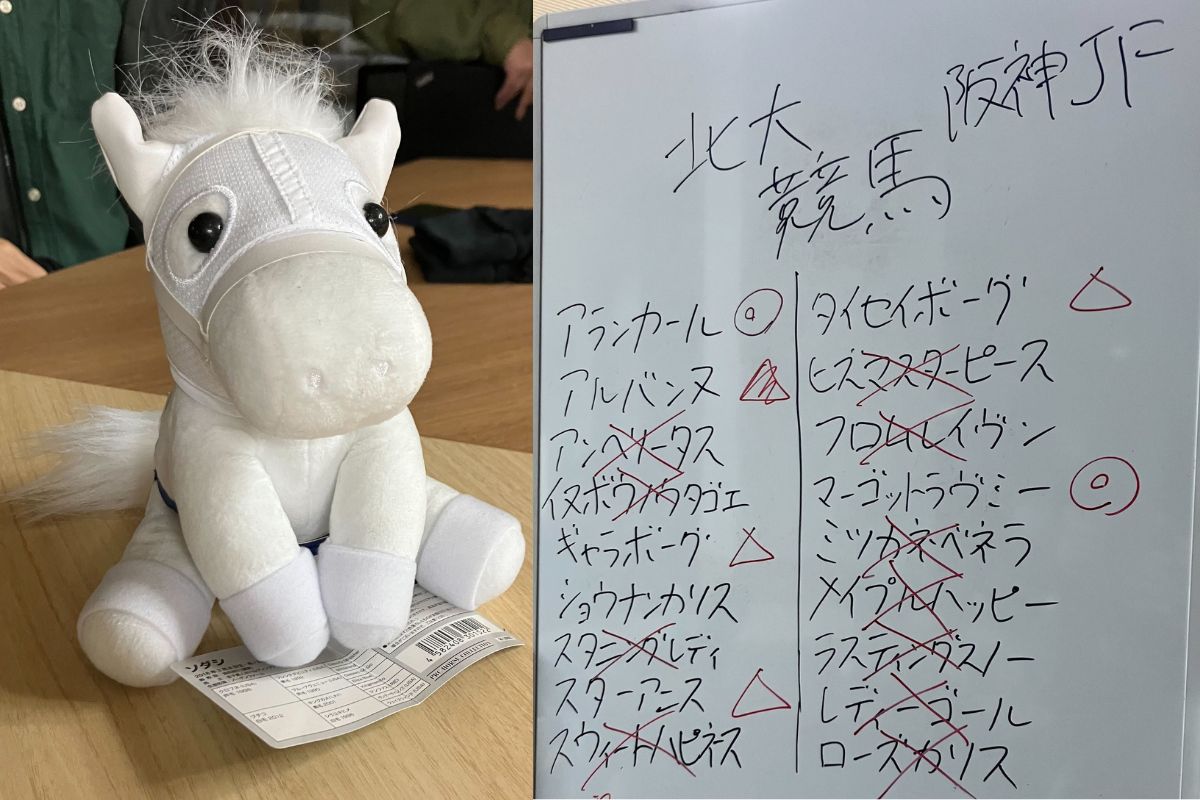 阪神JF
北大
競馬
アランカール ◎
アルバンヌ ▲
アンヘリータス
イヌボウノウタゴエ
ギャラボーグ △
ショウナンカリス
スタニングレディ
スターアニス △
スウィートハピネス
タイセイボーグ △
ヒズマスターピース
フロムレイヴン
マーゴットラヴミー ◎
ミツカネベネラ
メイプルハッピー
ラスティングスノー
レディーゴール
ローズカリス
ソダシ
4 982408 301522